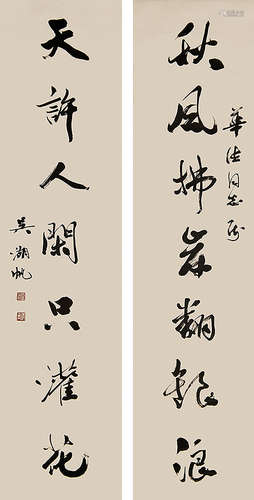 秋風拂岸翻銀浪
華法同志属
天許人閑只灌花
吳湖帆